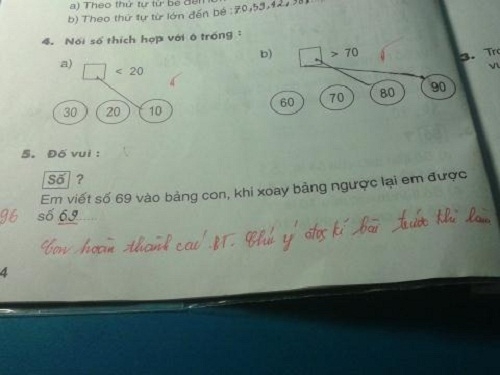 a) Theo thứ tự từ bé đến lớn
b) Theo thứ tự từ lớn đến bé : 70, 59, 42, 38,
4. Nối số thích hợp với ô trống :
a) < 20
30 20 10
b) > 70
60 70 80 90
3. Tr
vu
5. Đố vui :
Số ?
Em viết số 69 vào bảng con, khi xoay bảng ngược lại em được
96 số 69.....
Con hoàn thành các BT. Chú ý đọc kĩ bài trước khi làm
4